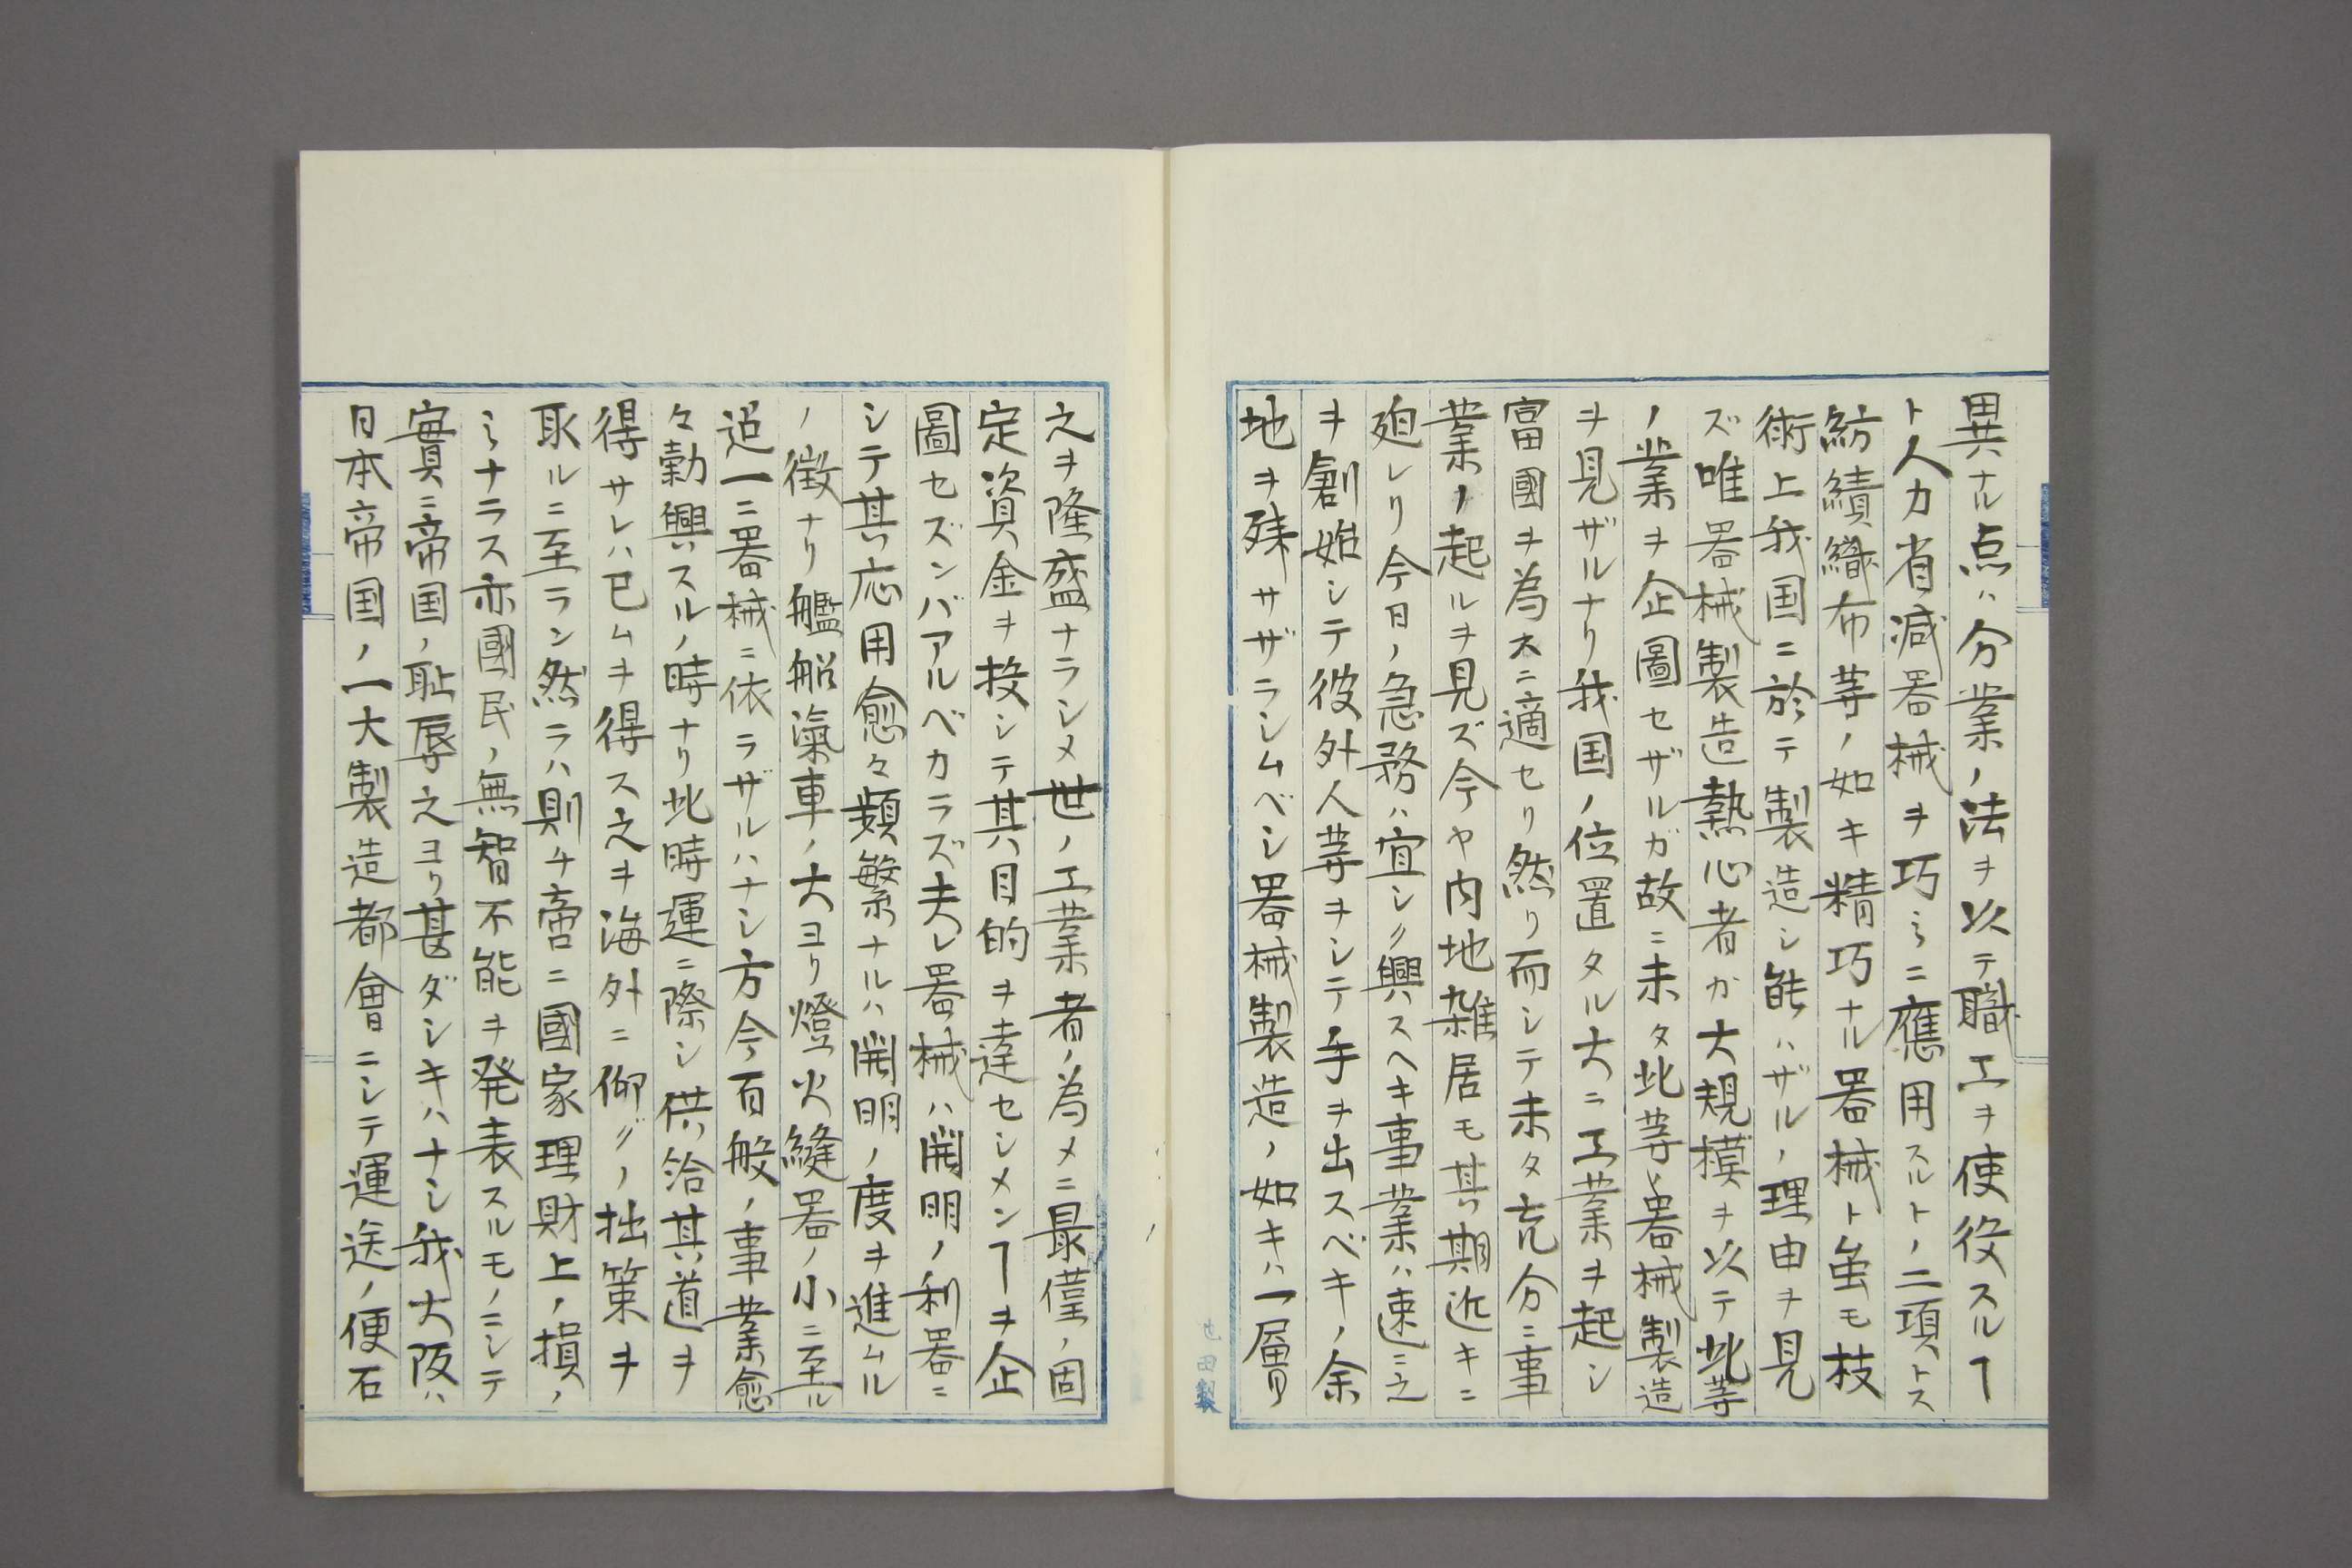 異ナル点ハ分業ノ法ヲ以テ職工ヲ使役スルヿ
ト人力省減器械ヲ巧ミニ應用スルトノ二項トス
紡績織布等ノ如キ精巧ナル器械ト虽モ技
術上我国ニ於テ製造シ能ハザルノ理由ヲ見
ズ唯器械製造熱心者カ大規模ヲ以テ此等
ノ業ヲ企圖セザルガ故ニ未タ此等ノ器械製造
ヲ見ザルナリ我国ノ位置タル大ニ工業ヲ起シ
富國ヲ為スニ適セリ然リ而シテ未タ充分ニ事
業ノ起ルヲ見ズ今ヤ内地雑居モ其期近キニ
廻レリ今日ノ急務ハ宜シク興スヘキ事業ハ速ニ之
ヲ創始シテ彼外人等ヲシテ手ヲ出スベキノ余
地ヲ残サザラシムベシ器械製造ノ如キハ一層
之ヲ隆盛ナラシメ世ノ工業者ノ為メニ最僅ノ固
定資金ヲ投シテ其目的ヲ達セシメンヿヲ企
圖セズンバアルベカラズ夫レ器械ハ開明ノ利器ニ
シテ其応用愈々頻繁ナルハ開明ノ度ヲ進ムル
ノ徴ナリ艦船滊車ノ大ヨリ燈火縫器ノ小ニ至ル
迄一ニ器械ニ依ラザルハナシ方今百般ノ事業愈
々勃興スルノ時ナリ此時運ニ際シ供給其道ヲ
得サレハ已ムヲ得ス之ヲ海外ニ仰グノ拙策ヲ
取ルニ至ラン然ラハ則チ啻ニ國家理財上ノ損ノ
ミナラス亦國民ノ無智不能ヲ発表スルモノニシテ
實ニ帝国ノ恥辱之ヨリ甚ダシキハナシ我大阪ハ
日本帝国ノ一大製造都會ニシテ運送ノ便石